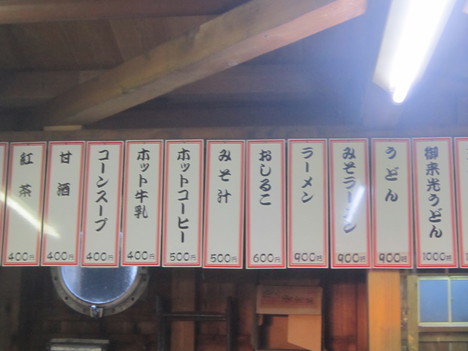 紅茶 400円
甘酒 400円
コーンスープ 400円
ホット牛乳 400円
ホットコーヒー 500円
みそ汁 500円
おしるこ 600円
ラーメン 900円
みそラーメン 900円
うどん 900円
御来光うどん 1000円